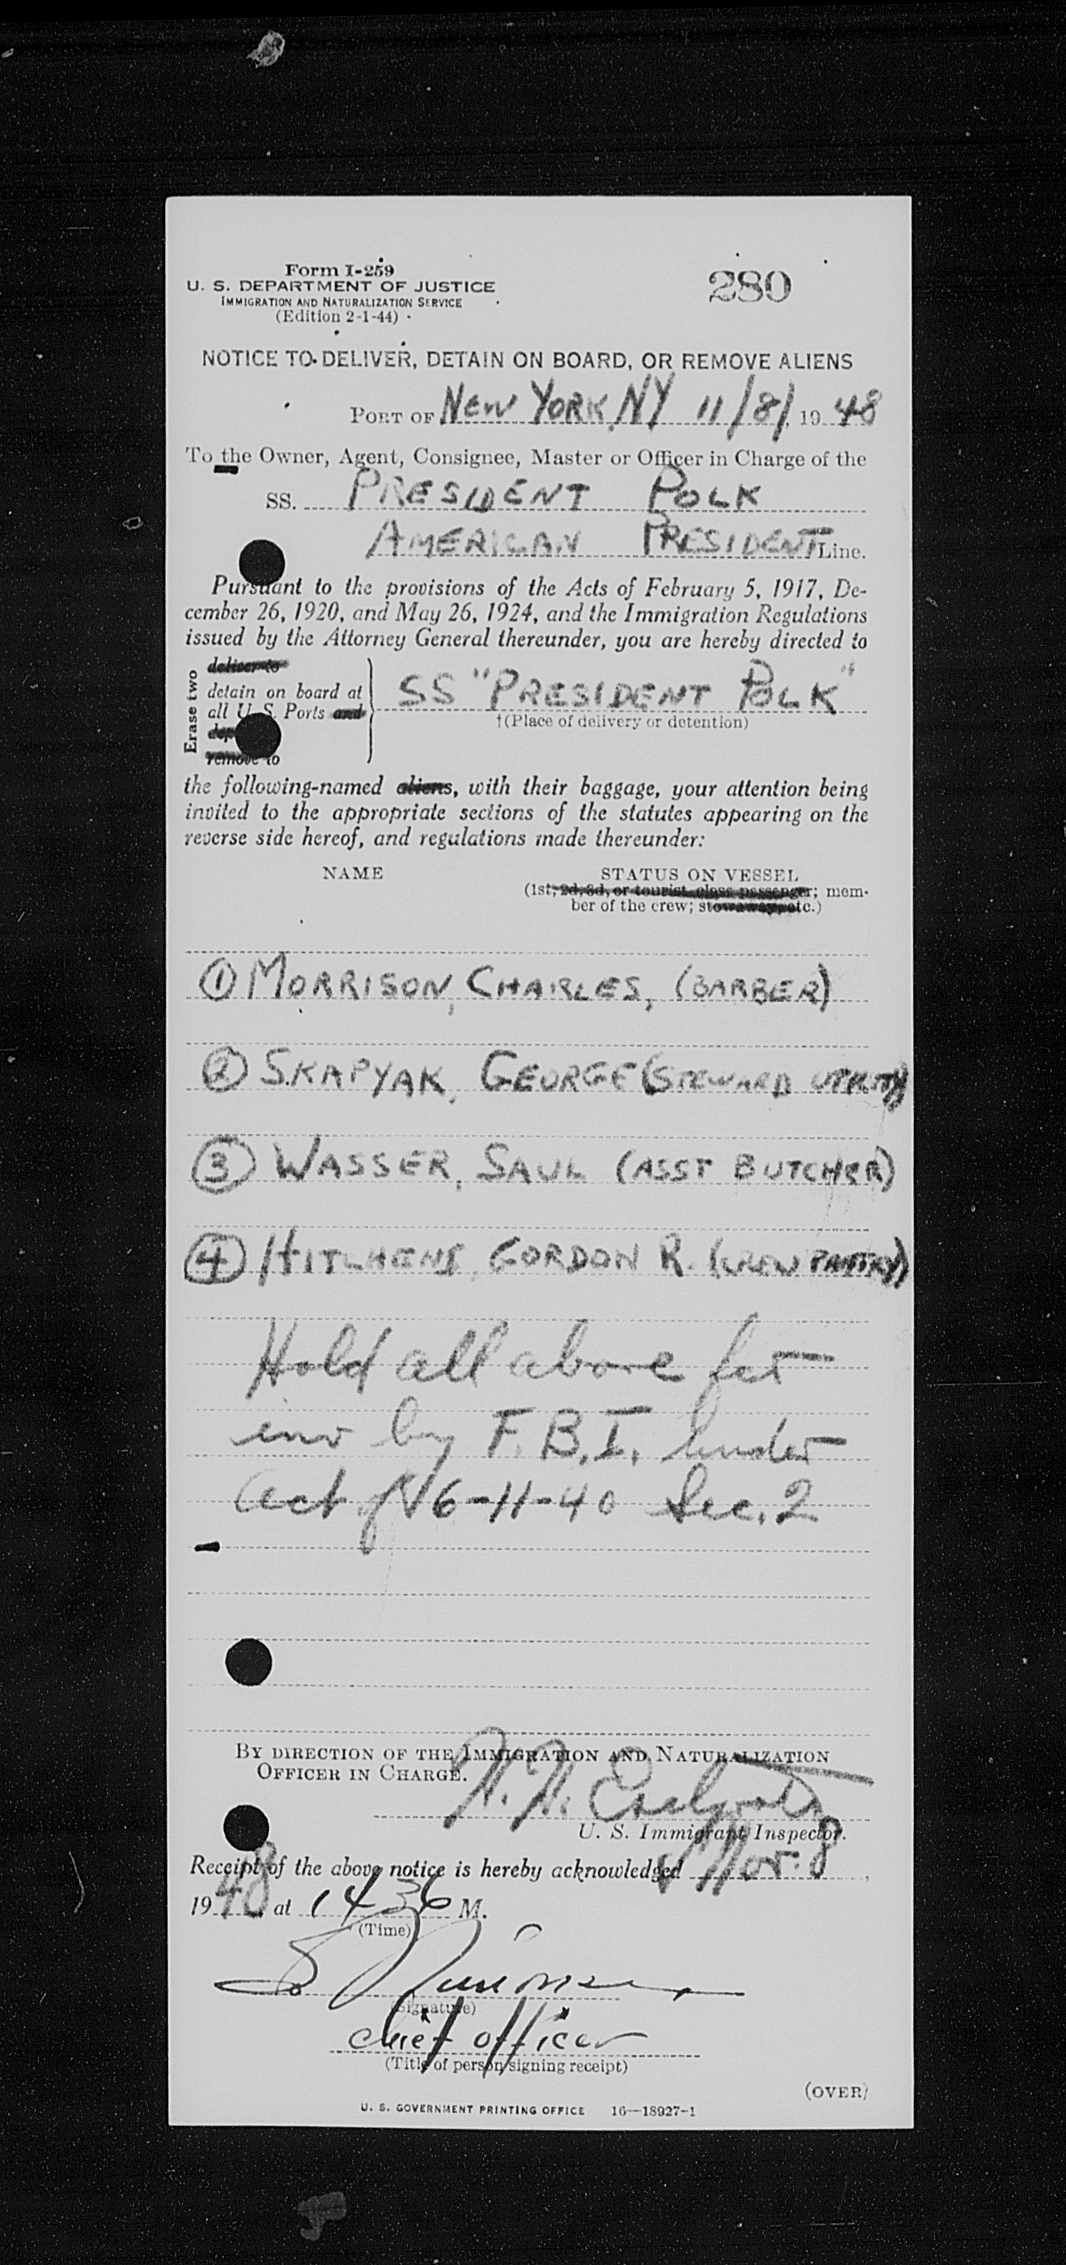 Form I-259
U. S. DEPARTMENT OF JUSTICE
IMMIGRATION AND NATURALIZATION SERVICE
(Edition 2-1-44)
280
NOTICE TO DELIVER, DETAIN ON BOARD, OR REMOVE ALIENS
PORT OF NEW YORK, NY 11/8/, 1948
To the Owner, Agent, Consignee, Master or Officer in Charge of the
SS. PRESIDENT POLK
AMERICAN PRESIDENT Line.
Pursuant to the provisions of the Acts of February 5, 1917, De-
cember 26, 1920, and May 26, 1924, and the Immigration Regulations
issued by the Attorney General thereunder, you are hereby directed to
Erase two
deliver to
detain on board at
all U. S. Ports and
remove to
SS "PRESIDENT POLK"
†(Place of delivery or detention)
the following-named aliens, with their baggage, your attention being
invited to the appropriate sections of the statutes appearing on the
reverse side hereof, and regulations made thereunder:
NAME
STATUS ON VESSEL
(1st, 2d, 3d, or tourist class passenger; mem-
ber of the crew; stowaway, etc.)
① MORRISON, CHARLES, (BARBER)
② SKAPYAK, GEORGE (STEWARD UTILITY)
③ WASSER, SAUL (ASST BUTCHER)
④ HITCHENS, GORDON R. (CREW PANTRY)
Hold all above for
inv by F.B.I. under
Act of 6-11-40 Sec. 2
BY DIRECTION OF THE IMMIGRATION AND NATURALIZATION
OFFICER IN CHARGE.
U. S. Immigrant Inspector.
Receipt of the above notice is hereby acknowledged Nov. 8,
1948 at 1436 M.
(Time)
(Signature)
chief officer
(Title of person signing receipt)
(OVER)
U. S. GOVERNMENT PRINTING OFFICE 16—18927-1